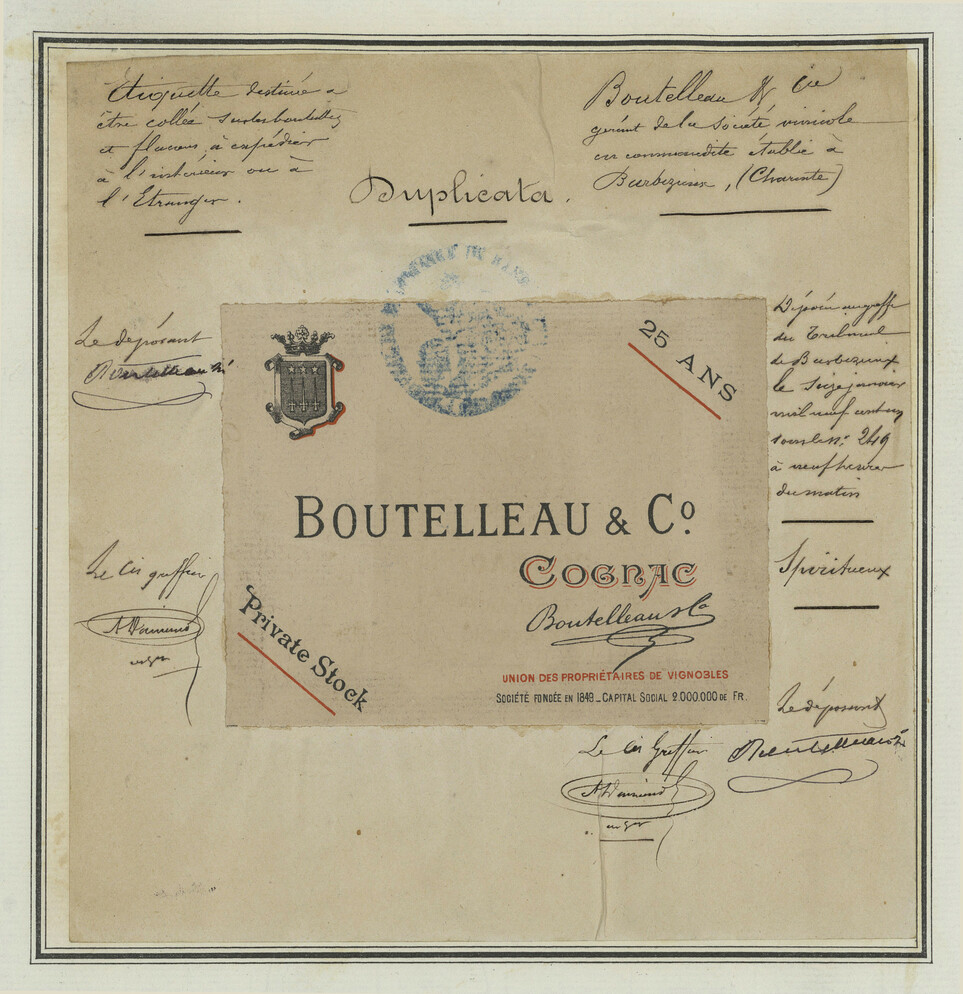 Etiquette destinée à
être collée sur les bouteilles
et flacons à expédier
à l'intérieur ou à
l'Etranger.
Duplicata.
Boutelleau & Cie
gérant de la Société vinicole
en commandite établie à
Barbezieux, (Charente)
Le déposant
Le Cis greffier
25 ANS
BOUTELLEAU & Cº
COGNAC
Boutelleau & Co
Private Stock
UNION DES PROPRIÉTAIRES DE VIGNOBLES
SOCIÉTÉ FONDÉE EN 1849_CAPITAL SOCIAL 2.000.000 DE FR.
Déposé au greffe
du Tribunal
de Barbezieux
le Seize janvier
mil neuf cent un
sous le nº 249
à neuf heures
du matin
Spiritueux
Le déposant
Le Cis Greffier